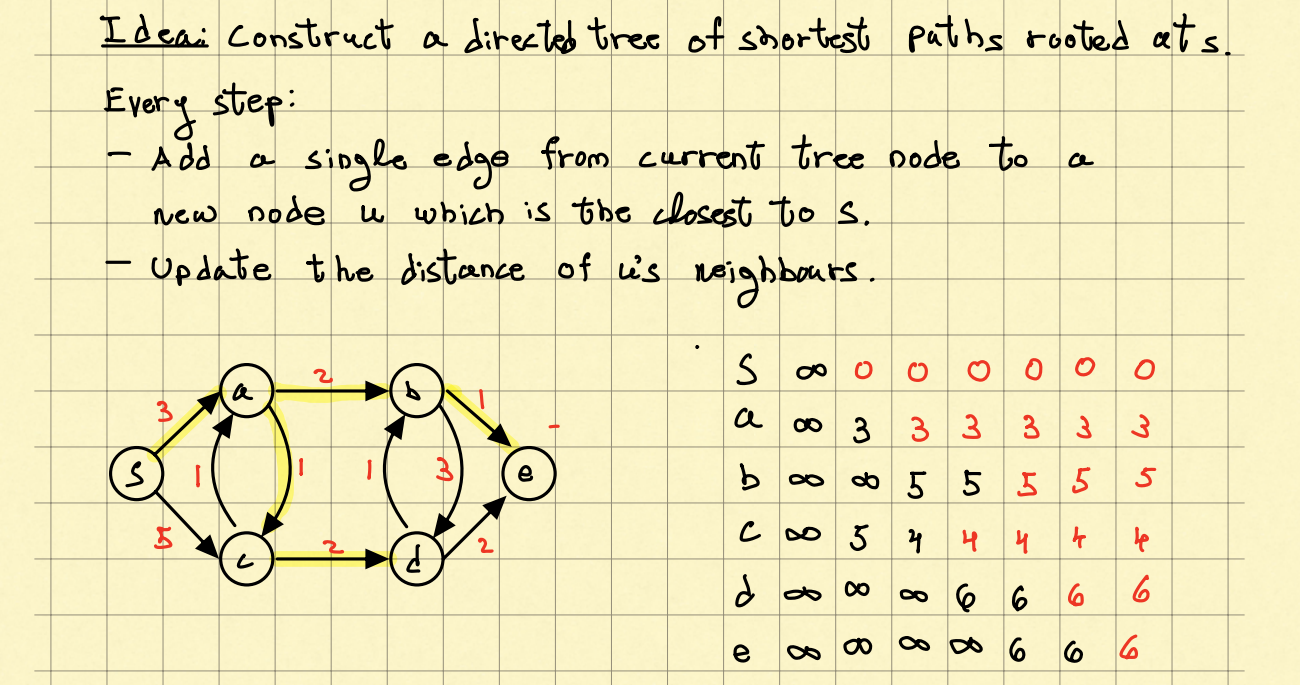 Idea: Construct a directed tree of shortest paths rooted at s.
Every step:
- Add a single edge from current tree node to a
new node u which is the closest to s.
- Update the distance of u's neighbours.
a 2 b
3 1
s 1 1 1 3 e
5 2 2
c d
S ∞ 0 0 0 0 0 0
a ∞ 3 3 3 3 3 3
b ∞ ∞ 5 5 5 5 5
c ∞ 5 4 4 4 4 4
d ∞ ∞ ∞ 6 6 6 6
e ∞ ∞ ∞ ∞ 6 6 6